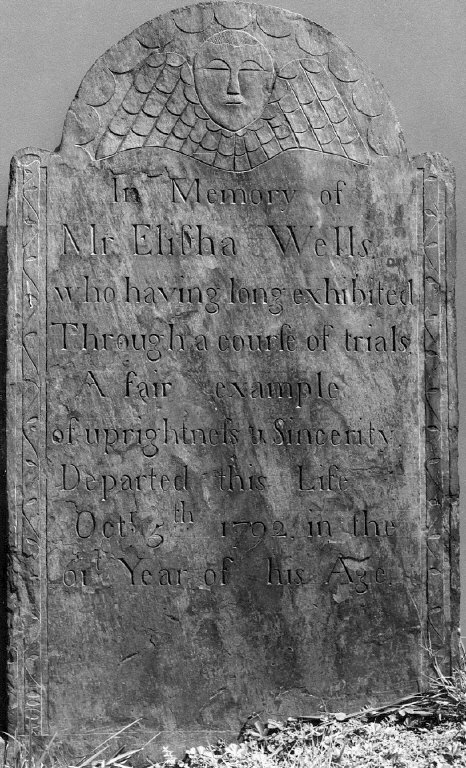 In Memory of
Mr. Eliſha Wells,
who having long exhibited
Through a courſe of trials,
A fair example
of uprightneſs & Sincerity,
Departed this Life
Octr. 5th 1792, in the
61ſt Year of his Age.